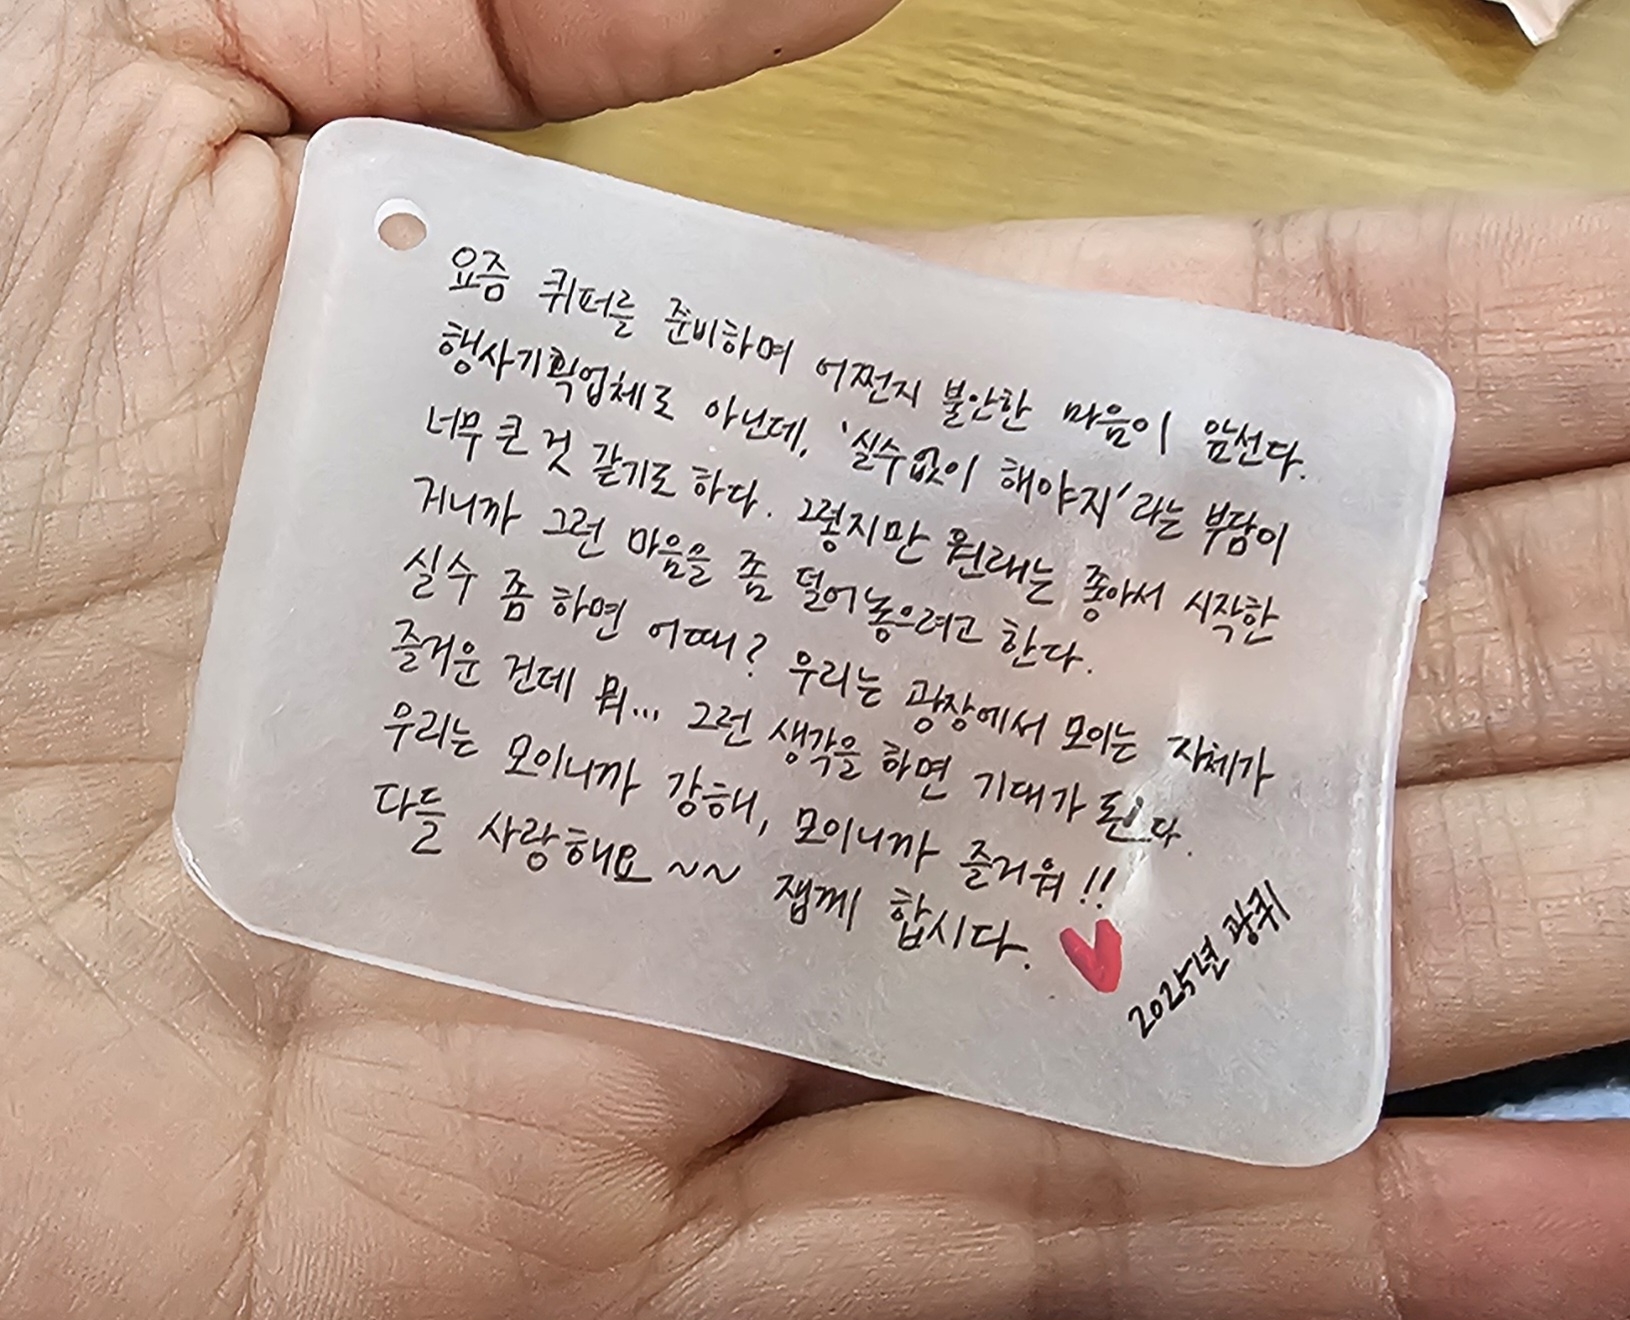 요즘 퀴퍼를 준비하며 어쩐지 불안한 마음이 앞선다.
행사기획업체도 아닌데, '실수없이 해야지'라는 부담이
너무 큰 것 같기도 하다. 그렇지만 원래는 좋아서 시작한
거니까 그런 마음을 좀 덜어놓으려고 한다.
실수 좀 하면 어때? 우리는 광장에서 모이는 자체가
즐거운 건데 뭐... 그런 생각을 하면 기대가 된다.
우리는 모이니까 강해, 모이니까 즐거워!!
다들 사랑해요~~ 잼께 합시다.
2025년 광퀴